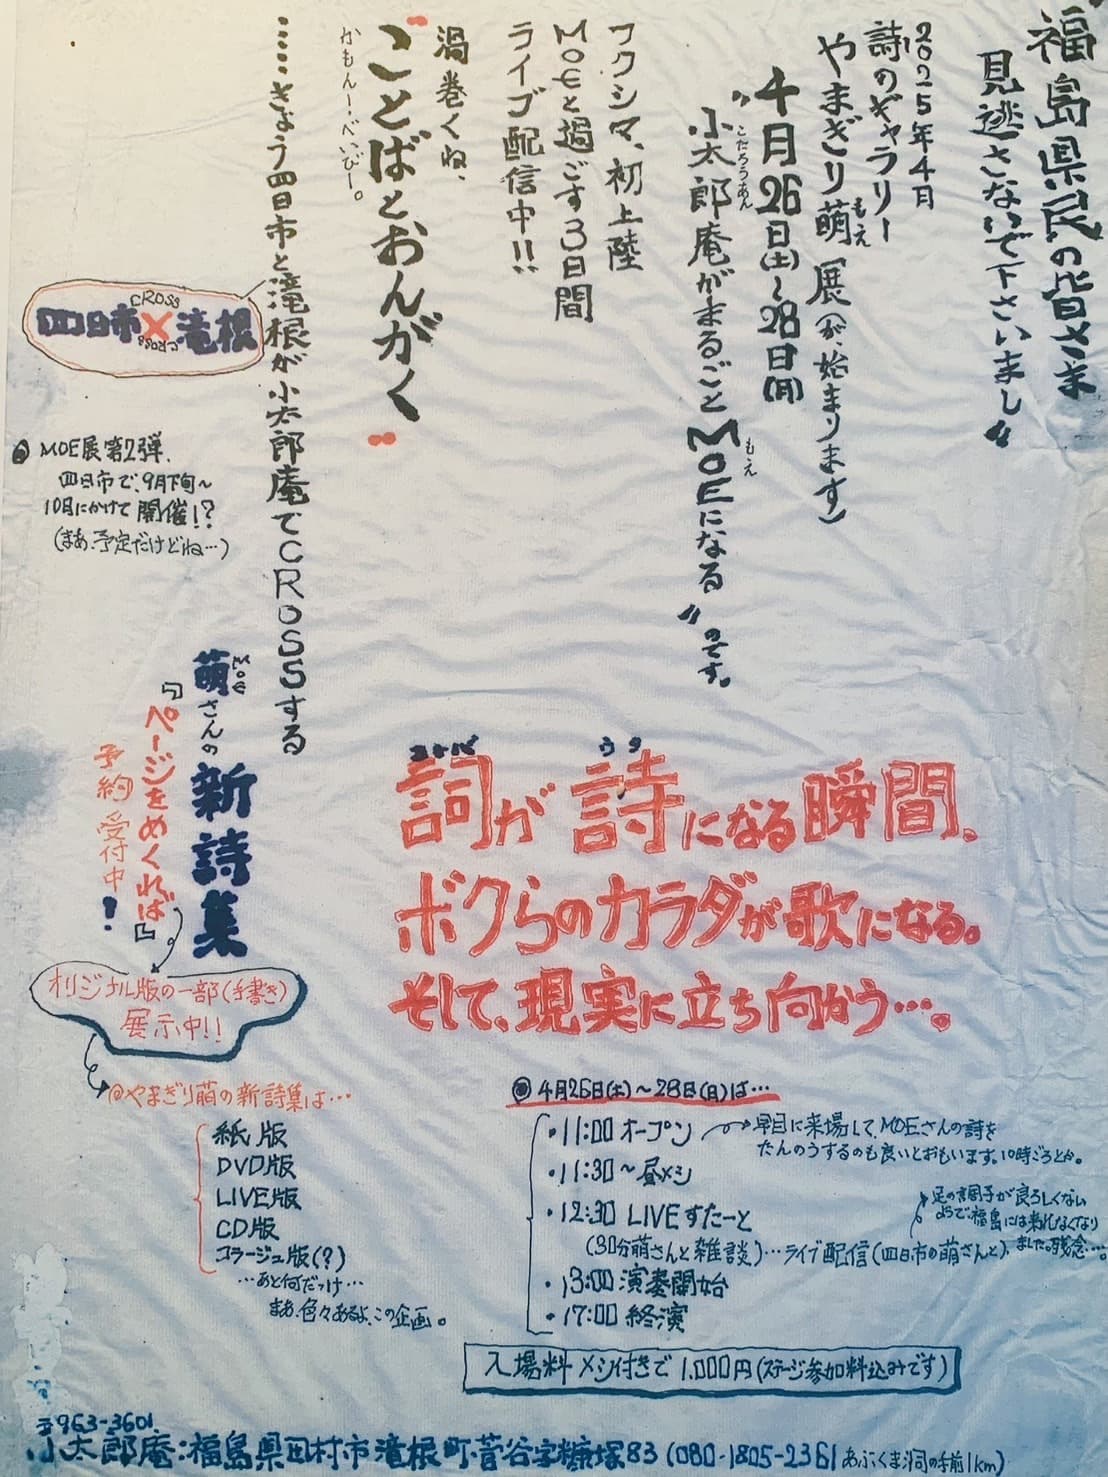 福島県民の皆さま
見逃さないで下さいまし〟
2025年4月
詩のギャラリー
やまぎり萌展(が、始まります)
もえ
4月26日(土)〜28日(月)
〝小太郎庵がまるごとMOEになる〟のです。
こだろうあん
もえ
フクシマ、初上陸
MOEと過ごす3日間
ライブ配信中!!
渦巻くね、
〝ことばとおんがく〟
かもんー!べいびー。
……きょう四日市と滝根が小太郎庵でCROSSする
四日市×滝根
CROSS
cross
◎MOE展第2弾、
四日市で、9月下旬〜
10月にかけて開催!?
(まあ、予定だけどね…)
萌さんの新詩集
MOE
『ページをめくれば』
予約受付中!
オリジナル版の一部(手書き)
展示中!!
@やまぎり萌の新詩集は…
紙版
DVD版
LIVE版
CD版
コラージュ版(?)
…あと何だっけ…
まあ、色々あるよ、この企画。
コトバ ウタ
詞が詩になる瞬間、
ボクらのカラダが歌になる。
そして、現実に立ち向かう…。
◎4月26日(土)〜28日(月)は…
・11:00 オープン
早目に来場して、MOEさんの詩を
たんのうするのも良いとおもいます。10時ごろとか。
・11:30〜昼メシ
・12:30 LIVEすたーと
(30分萌さんと雑談)…ライブ配信(四日市の萌さんと)
足の調子が良ろしくない
ようで、福島には来れなくなり
ました。残念…。
・13:00 演奏開始
・17:00 終演
入場料 メシ付きで 1,000円(ステージ参加料込みです)
〒963-3601
小太郎庵:福島県田村市滝根町菅谷字糠塚83(080-1805-2361 あぶくま洞の手前1km)